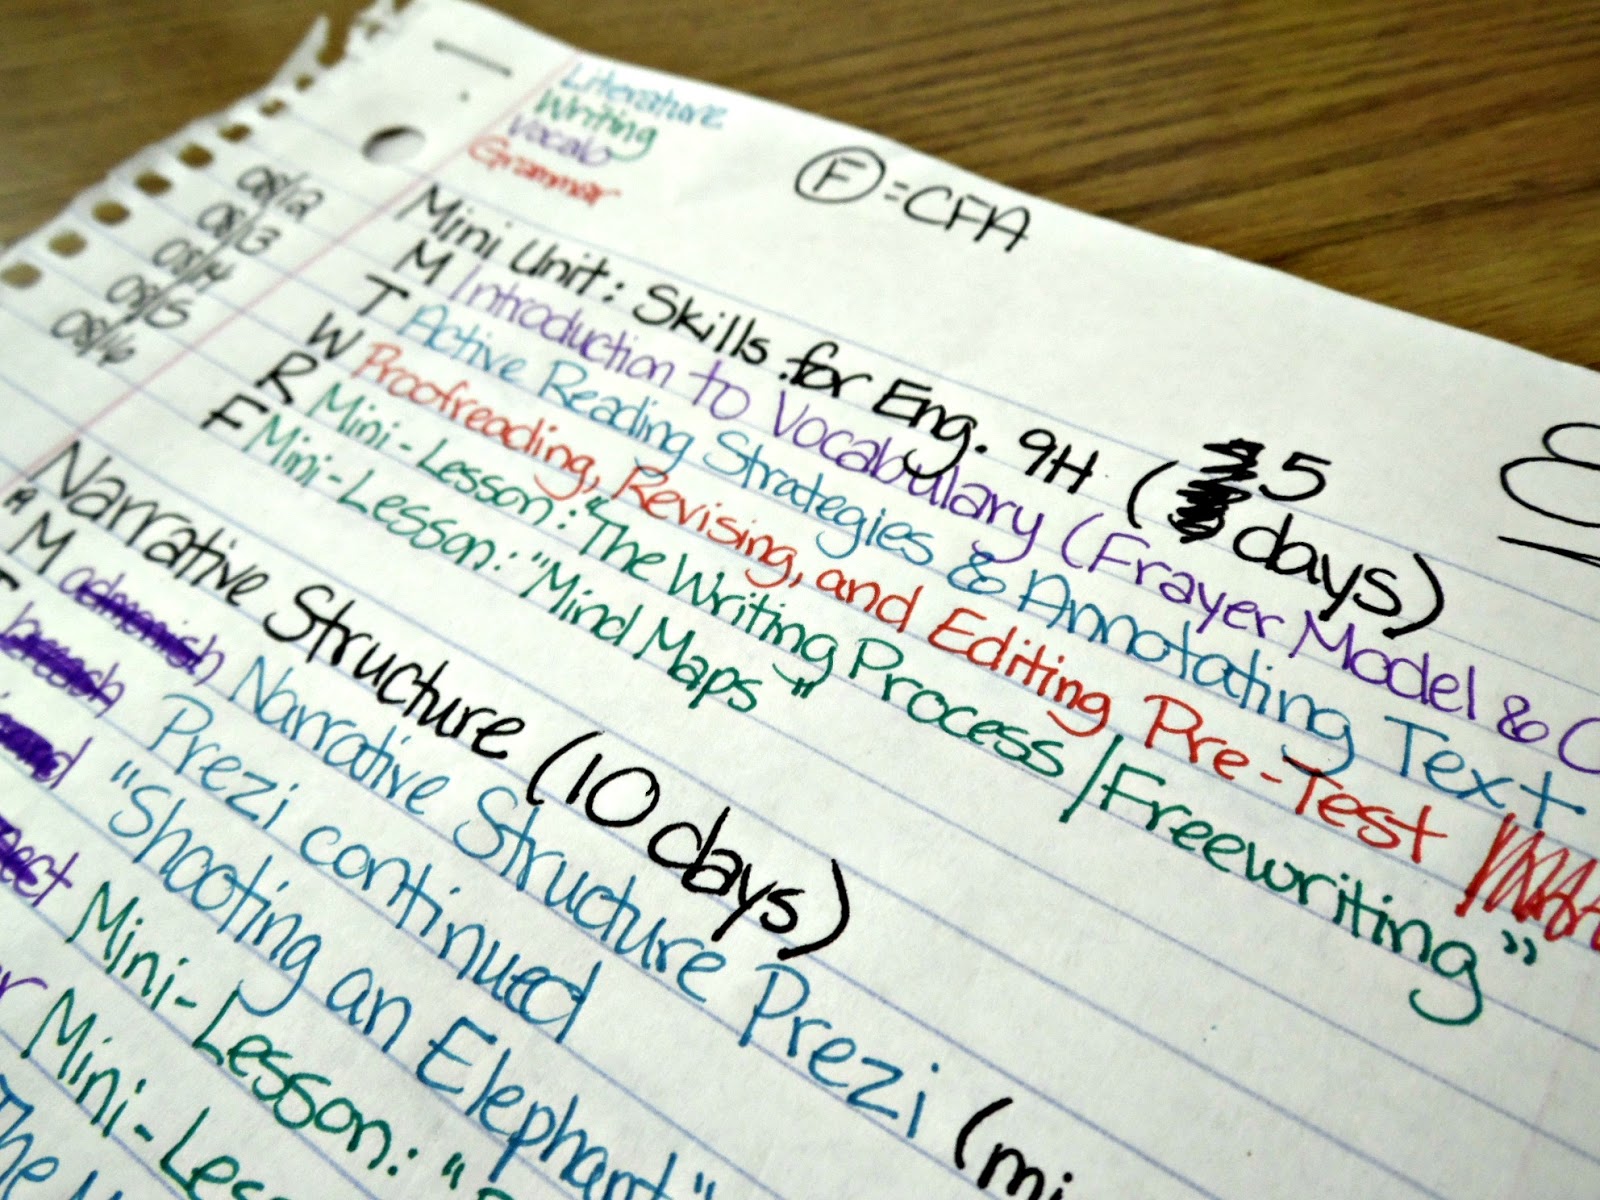 Literature
Writing
Vocab
Grammar
F = CFA
Mini Unit: Skills for Eng. 9H (5 days)
08/12
M Introduction to Vocabulary (Frayer Model &
08/13
T Active Reading Strategies & Annotating Text
08/14
W Proofreading, Revising, and Editing Pre-Test
08/15
R Mini-Lesson: "The Writing Process/Freewriting"
08/16
F Mini-Lesson: "Mind Maps"
Narrative Structure (10 days)
M admonish Narrative Structure Prezi
T breach Prezi continued
"Shooting an Elephant"
Mini-Lesson: "
Mini-Lesson:
The